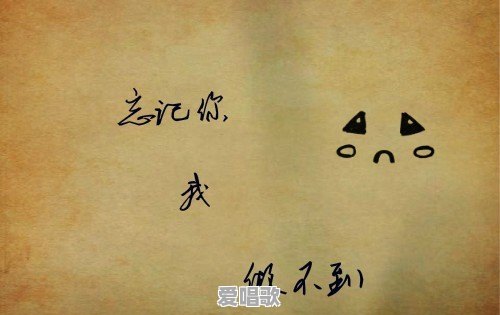 忘记你
我
做不到
爱唱歌